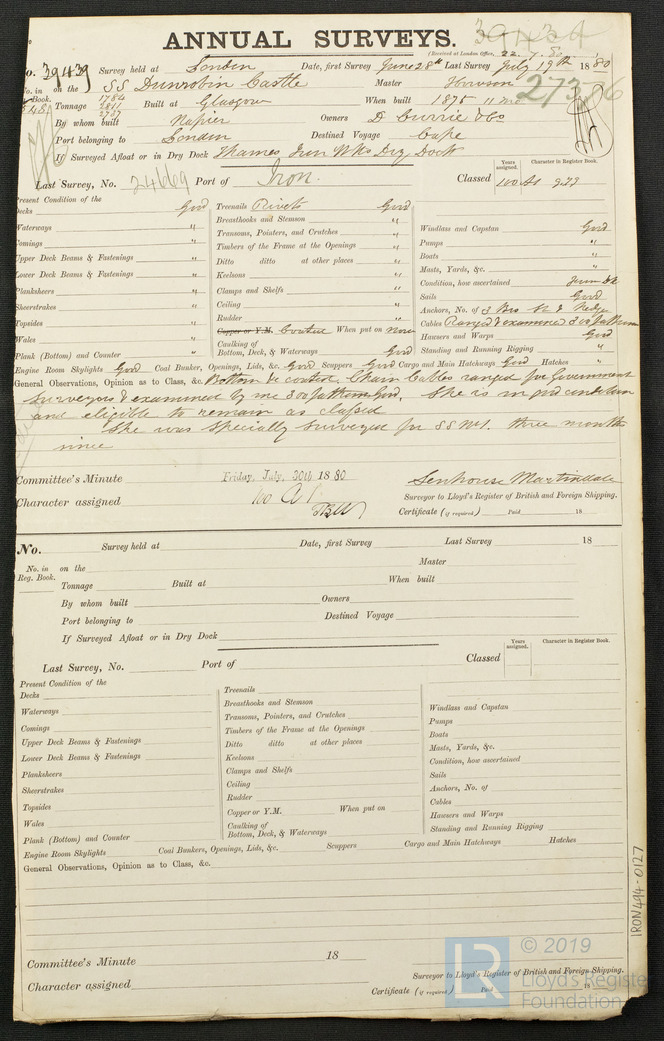 ANNUAL SURVEYS. 39434
(Received at London Office, 22. 7. 80
No. 39439 Survey held at London Date, first Survey June 28th Last Survey July 19th 1880
No. in on the SS Dunrobin Castle Master Howson 27386
Book.
Tonnage 1784 2811 2737 Built at Glasgow When built 1875 11 mo
By whom built Napier Owners D Currie & Co
Port belonging to London Destined Voyage Cape
If Surveyed Afloat or in Dry Dock Thames Iron Wks Dry Dock
Last Survey, No. 24669 Port of Iron. Classed Years assigned. 100 A1 Character in Register Book.
Present Condition of the
Decks Good Treenails Rivets Good
Waterways " Breasthooks and Stemson " Windlass and Capstan Good
Comings " Transoms, Pointers, and Crutches " Pumps "
Upper Deck Beams & Fastenings " Timbers of the Frame at the Openings " Boats "
Lower Deck Beams & Fastenings " Ditto ditto at other places " Masts, Yards, &c. "
Planksheers " Keelsons " Condition, how ascertained
Sheerstrakes " Clamps and Shelfs " Sails Good
Topsides " Ceiling " Anchors, No. of 3 Brs St & Kedge
Wales " Rudder " Cables Ranged & examined
Plank (Bottom) and Counter " Copper or Y.M. Coated When put on now Hawsers and Warps Good
Caulking of Bottom, Deck, & Waterways Good Standing and Running Rigging "
Engine Room Skylights Good Coal Bunkers, Openings, Lids, &c. Good Scuppers Good Cargo and Main Hatchways Good Hatches "
General Observations, Opinion as to Class, &c. Bottom be coated, Chain Cables ranged for Government
Surveyors & examined by me 300 fathoms Good. She is in good condition
and eligible to remain as classed
She was specially surveyed for SS No1. three months
since
Committee's Minute Friday, July, 30th 1880 Senhouse Martindale
Character assigned 100 A1 Surveyor to Lloyd's Register of British and Foreign Shipping.
Certificate (if required) Paid 18
No. Survey held at Date, first Survey Last Survey 18
No. in on the Master
Reg. Book.
Tonnage Built at When built
By whom built Owners
Port belonging to Destined Voyage
If Surveyed Afloat or in Dry Dock
Last Survey, No. Port of Classed Years assigned. Character in Register Book.
Present Condition of the
Decks Treenails
Waterways Breasthooks and Stemson Windlass and Capstan
Comings Transoms, Pointers, and Crutches Pumps
Upper Deck Beams & Fastenings Timbers of the Frame at the Openings Boats
Lower Deck Beams & Fastenings Ditto ditto at other places Masts, Yards, &c.
Planksheers Keelsons Condition, how ascertained
Sheerstrakes Clamps and Shelfs Sails
Topsides Ceiling Anchors, No. of
Wales Rudder Cables
Plank (Bottom) and Counter Copper or Y.M. When put on Hawsers and Warps
Caulking of Bottom, Deck, & Waterways Standing and Running Rigging
Engine Room Skylights Coal Bunkers, Openings, Lids, &c. Scuppers Cargo and Main Hatchways Hatches
General Observations, Opinion as to Class, &c.
IRON494-0127
Committee's Minute 18
Character assigned Surveyor to Lloyd's Register of British and Foreign Shipping.
Certificate (if required) Paid 18
LR © 2019
Lloyd's Register
Foundation